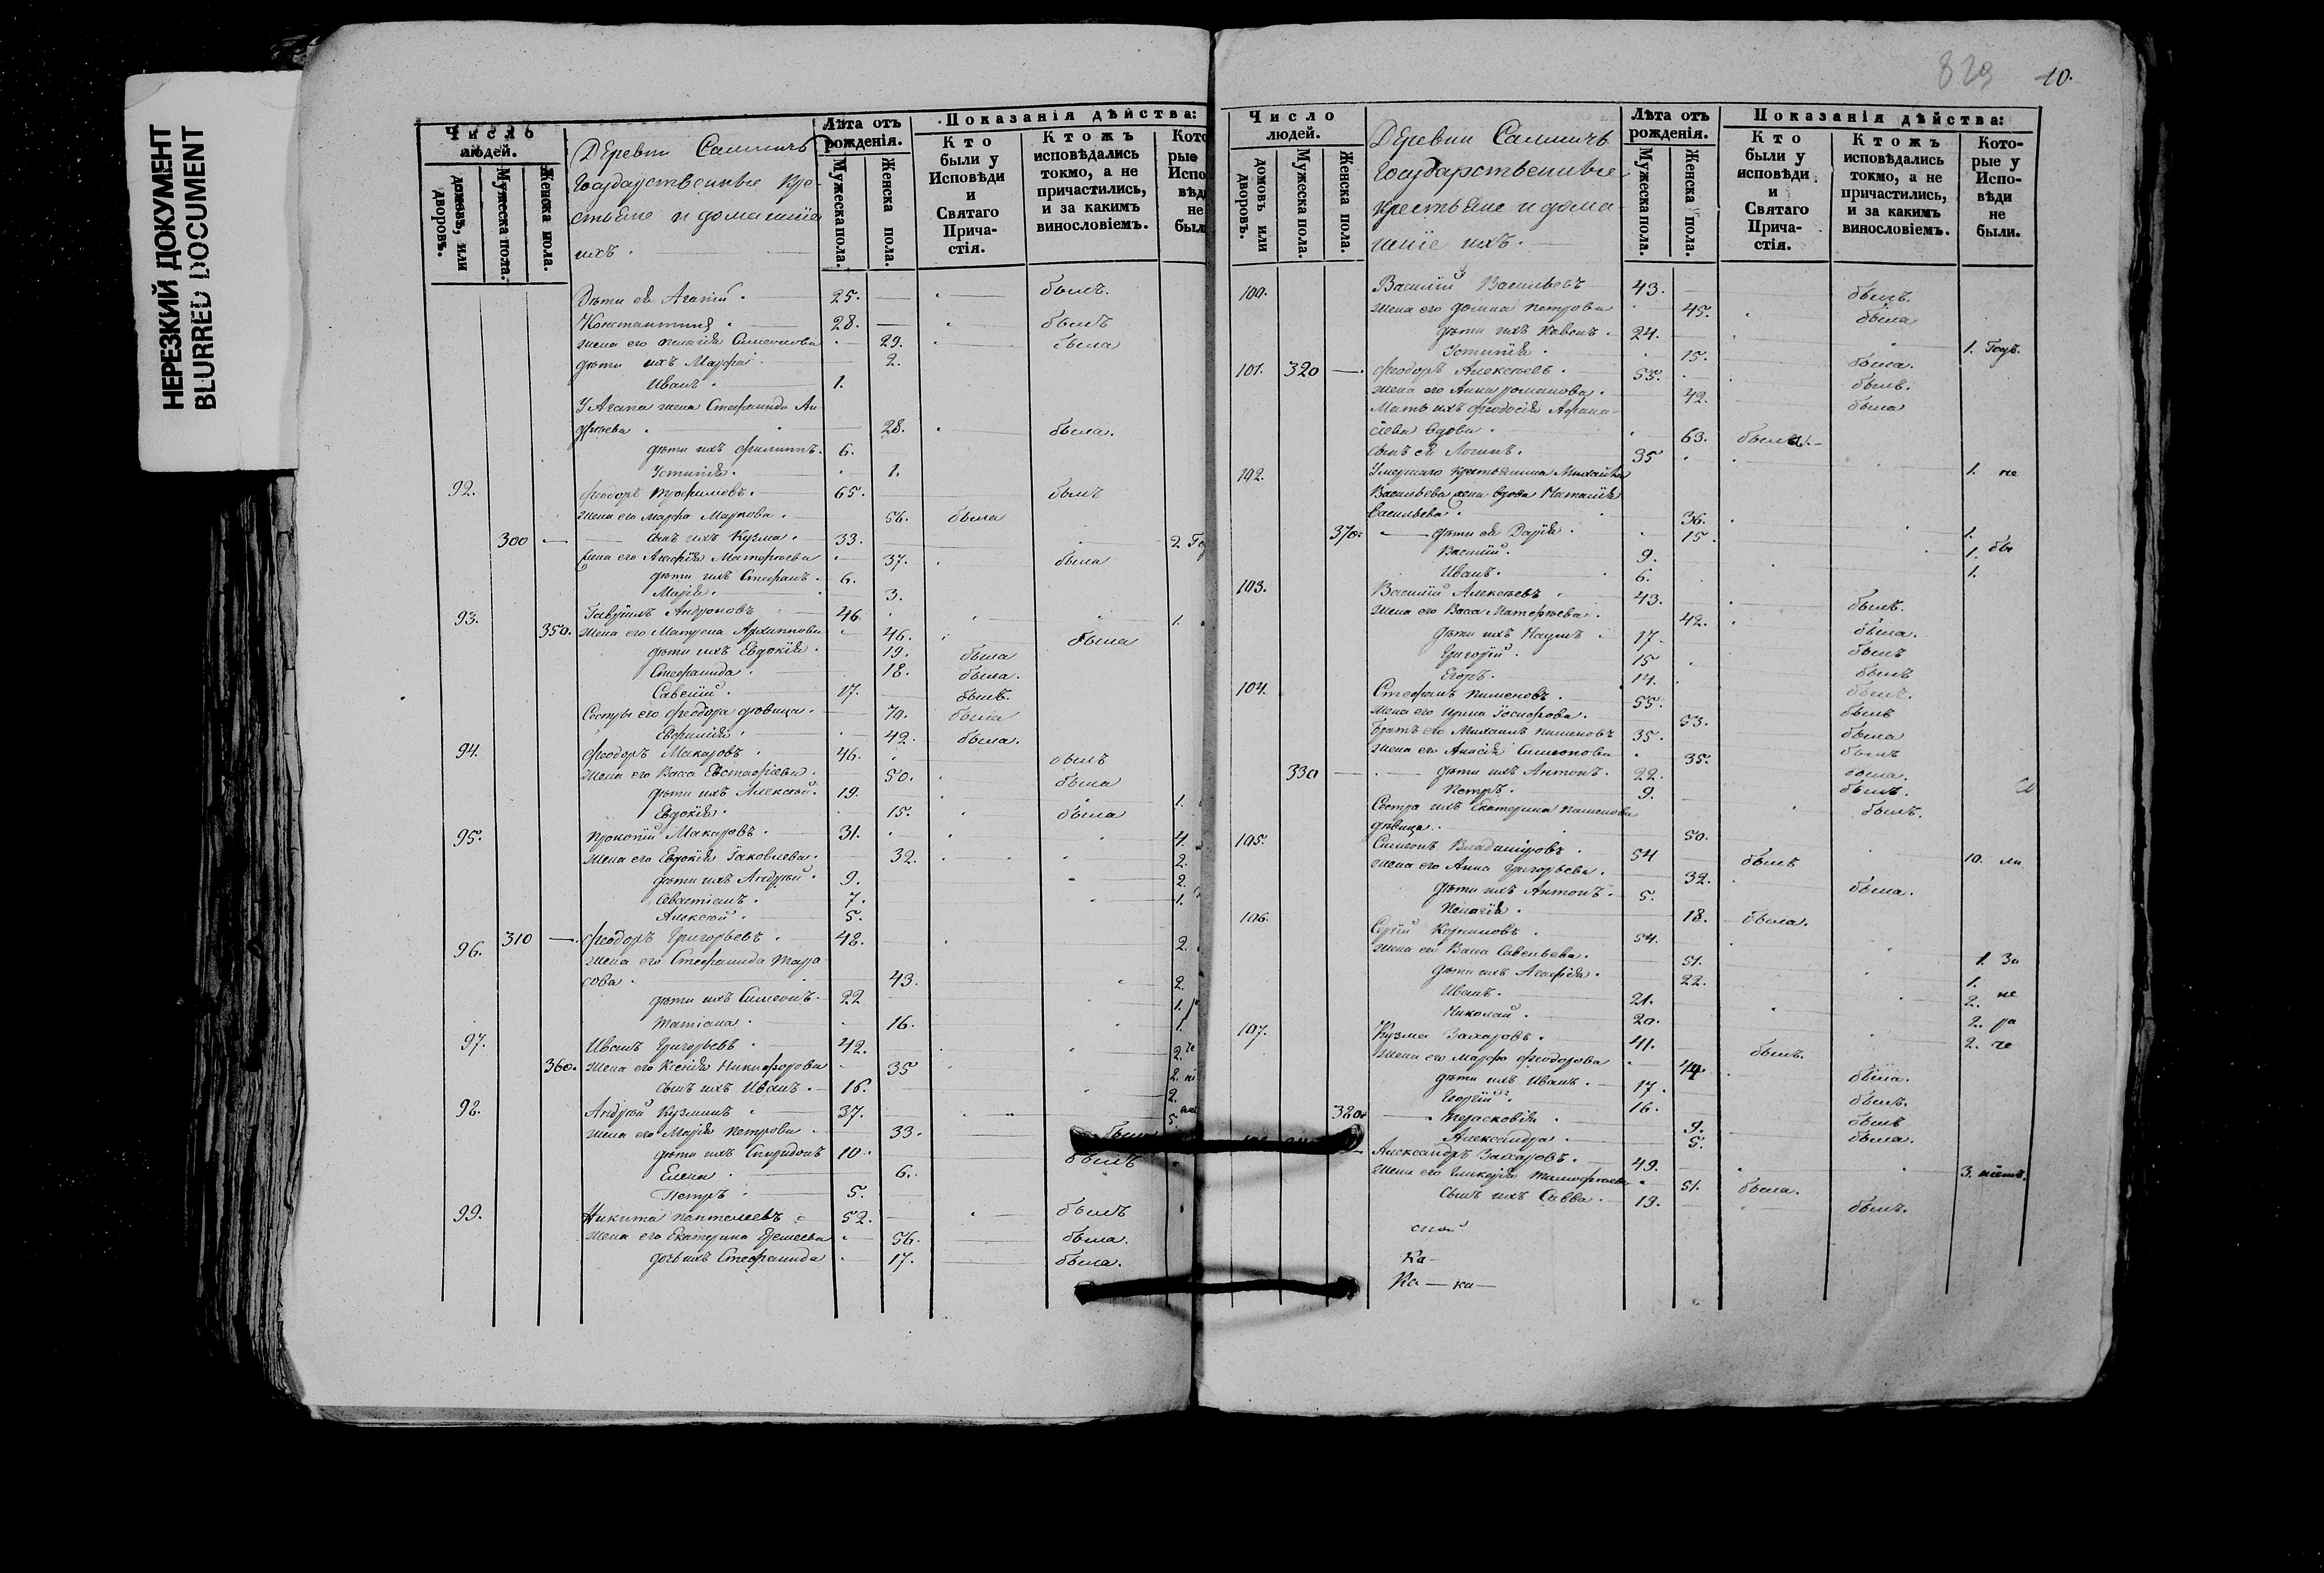 НЕРЕЗКИЙ ДОКУМЕНТ
BLURRED DOCUMENT
Число людей.
домовъ, или дворовъ.
Мужеска пола.
Женска пола.
Деревни
Государственные кре-
стьяне и домашніе
ихъ.
Лѣта отъ рожденія.
Мужеска пола.
Женска пола.
Показанія дѣйства:
Кто были у Исповѣди и Святаго Прича-стія.
Ктожъ исповѣдались токмо, а не причастились, и за какимъ винословіемъ.
Дѣти ея Агапій. 25. былъ.
Константинъ. 28. былъ
жена его Пелагія Симеонова 29. была
дѣти ихъ Марфа 2.
Иванъ. 1.
У Агапа жена Стефанида Ан-
дреева 28. была.
дѣти ихъ Филиппъ. 6.
Устинія. 1.
92. Феодоръ Трофимовъ. 65. былъ
жена его Марфа Маркова. 56. была
300 сынъ ихъ Кузма. 33. 2.
жена его Агафія Матфеева 37. была
дѣти ихъ Стефанъ. 6.
Марія. 3.
93. Гавріилъ Андроновъ 46. 1.
350. жена его Матрена Архиппова 46. была
дѣти ихъ Евдокія. 19. была
Стефанида. 18. была.
Савелій. 17. былъ.
Сестры его Феодора дѣвица. 70. была
Евфимія. 42. была.
94. Феодоръ Макаровъ. 46. былъ
жена его Васса Евстафіева. 50. была
дѣти ихъ Алексѣй. 19. 1.
Евдокія. 15. была
95. Прокопій Макаровъ. 31. 4.
жена его Евдокія Іаковлева. 32. 2.
дѣти ихъ Андрей. 9. 2.
Севастіанъ. 7. 1.
Алексѣй. 5.
96. 310 Феодоръ Григорьевъ. 48. 2.
жена его Стефанида Тара-
сова. 43. 2.
дѣти ихъ Симеонъ. 22 1.
Татіана. 16. 1.
97. Иванъ Григорьевъ. 42. 2.
360. жена его Ксенія Никифорова 35 2.
сынъ ихъ Иванъ. 16. 2.
98. Андрей Кузминъ 37. 5.
жена его Марія Петрова 33.
дѣти ихъ Спиридонъ 10. былъ
Елена 6.
Петръ 5.
99. Никита Пантелеевъ 52. былъ
жена его Екатерина Еремеева 56. была.
дочь ихъ Стефанида 17. была.
829 10.
Число людей.
домовъ или дворовъ.
Мужеска пола.
Женска пола.
Деревни
Государственные
крестьяне и дома-
шніе ихъ.
Лѣта отъ рожденія.
Мужеска пола.
Женска пола.
Показанія дѣйства:
Кто были у исповѣди и Святаго Прича-стія.
Ктожъ исповѣдались токмо, а не причастились, и за какимъ винословіемъ.
Кото-рые у Испо-вѣди не были.
100. Василій Васильевъ 43. былъ.
жена его Фотина Петрова 45. была
дѣти ихъ 24. 1.
Устинія. 15. была.
101. 320 Феодоръ Алексѣевъ. 55. былъ.
жена его Анна Романова. 42. была
Мать ихъ Феодосія Афана-
сіева вдова. 63. была.
сынъ ея Логинъ. 35 1. не
102. Умершаго крестьянина Михаила
Васильева жена вдова Наталія
Васильева. 36. 1.
370. дѣти ея Дарія. 15. 1.
Василій. 9. 1.
Иванъ. 6.
103. Василій Алексѣевъ 43. былъ.
жена его Васса Матфеева. 42. была.
дѣти ихъ Наумъ 17. былъ
Григорій. 15 былъ
Егоръ. 14. былъ.
104. Стефанъ Пименовъ. 55. былъ
жена его Ирина Іосифова. 53. была
Братъ его Михаилъ Пименовъ 35. былъ
жена его Анисія Симеонова 35. была.
330 дѣти ихъ Антонъ. 22. былъ.
Петръ. 9. былъ.
Сестра ихъ Екатерина Пименова
дѣвица. 50.
105. Симеонъ Владиміровъ. 54 былъ 10.
жена его Анна Григорьева. 32. была.
дѣти ихъ Антонъ. 5.
Пелагія. 18. была.
106. Сергій 54.
жена его Васса Савельева. 51. 1. За
дѣти ихъ Агафія. 22. 1.
Иванъ. 21. 2. не
Николай. 20. 2. ра
107. Кузма Захаровъ. 41. былъ. 2. че
жена его Марфа Феодорова 44. была.
дѣти ихъ Иванъ. 17. былъ.
Георгій. 16. былъ
380. Парасковія. 9. была.
Александра. 5.
Александръ Захаровъ. 49. 3.
жена его Гликерія Тимофеева 51. была.
сынъ ихъ Савва. 19. былъ.
Ка-
Ка — ка —